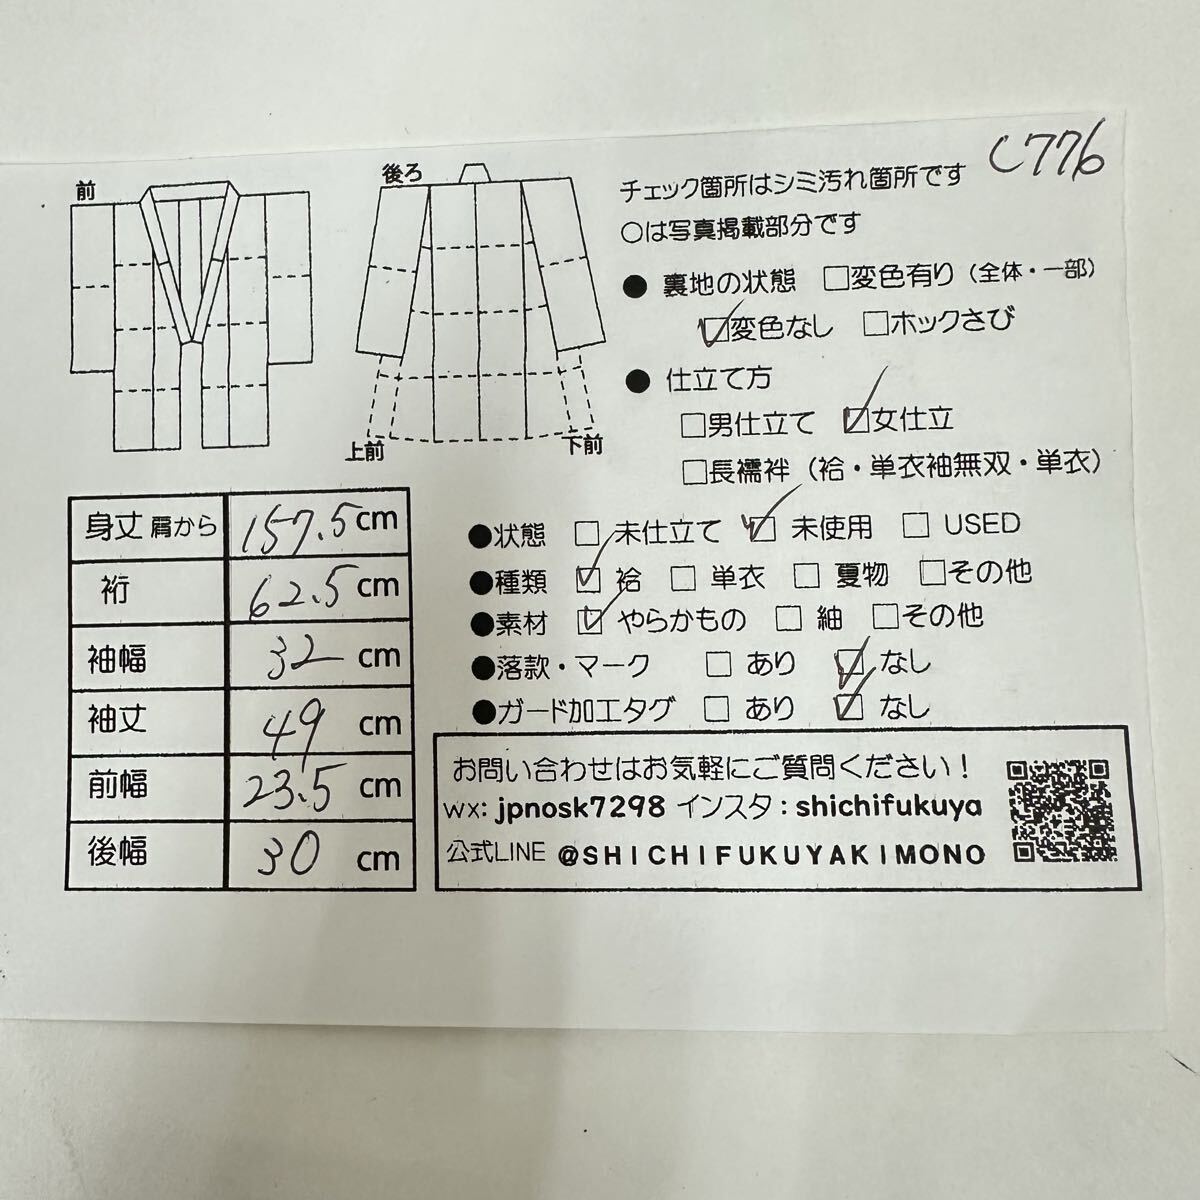 C776
前
後ろ
上前
下前
チェック箇所はシミ汚れ箇所です
○は写真掲載部分です
● 裏地の状態 □変色有り（全体・一部）
☑変色なし □ホックさび
● 仕立て方
□男仕立て ☑女仕立
□長襦袢（袷・単衣袖無双・単衣）
●状態 □ 未仕立て ☑ 未使用 □ USED
●種類 ☑ 袷 □ 単衣 □ 夏物 □その他
●素材 ☑ やらかもの □ 紬 □その他
●落款・マーク □ あり ☑ なし
●ガード加工タグ □ あり ☑ なし
身丈 肩から 157.5cm
裄 62.5cm
袖幅 32 cm
袖丈 49 cm
前幅 23.5 cm
後幅 30 cm
お問い合わせはお気軽にご質問ください！
wx: jpnosk7298 インスタ：shichifukuya
公式LINE @SHICHIFUKUYAKIMONO